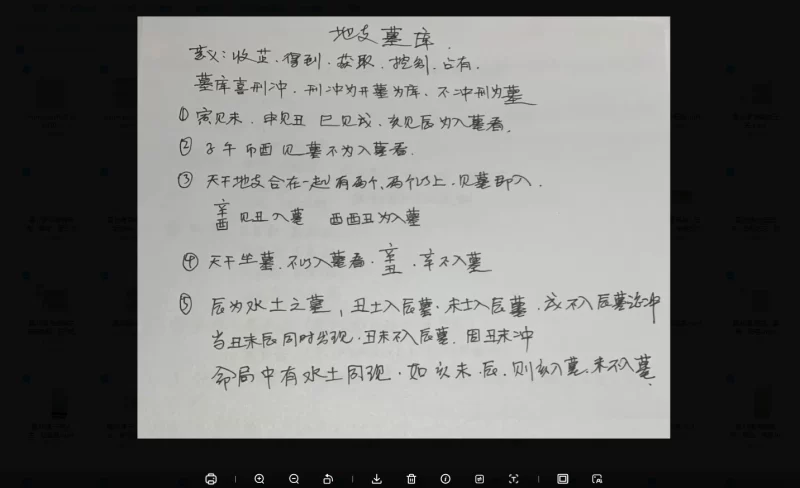 地支墓库
意义：收益．得到．获取．控制．占有．
墓库喜刑冲．刑冲为开墓为库．不冲刑为墓
①寅见未．申见丑 巳见戌．亥见辰为入墓看．
②子午卯酉见墓不为入墓看．
③天干地支合在一起有两个、两个以上．见墓即入．
辛酉 见丑入墓 酉酉丑为入墓
④天干坐墓．不以入墓看．辛丑．辛不入墓
⑤辰为水土之墓，丑土入辰墓．未土入辰墓．戌不入辰墓逢冲
当丑未辰同时出现．丑未不入辰墓．因丑未冲
命局中有水土同现．如亥未．辰．则亥入墓．未不入墓．